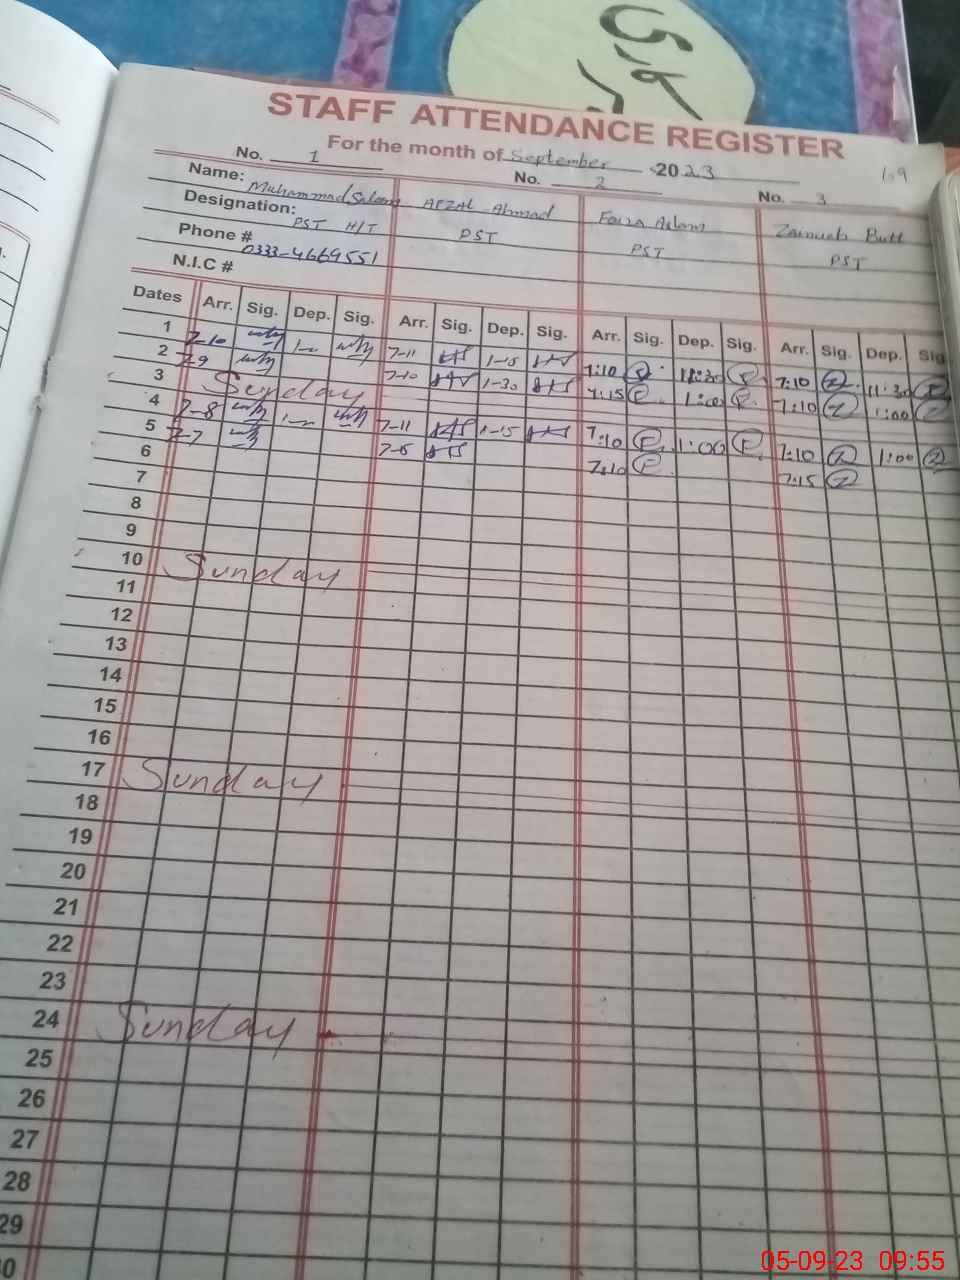 STAFF ATTENDANCE REGISTER
For the month of September 2023
1.9
No. 1 No. 2 No. 3
Name: Muhammad Saleem AFZAL Ahmad Faiza Aslam Zainueb Butt
Designation: PST H/T PST PST PST
Phone # 0333-4669551
N.I.C #
Dates Arr. Sig. Dep. Sig. Arr. Sig. Dep. Sig. Arr. Sig. Dep. Sig. Arr. Sig. Dep. Sig
1 7-10 7-11 1-15 7:10 11:30 7:10 11:30
2 7-9 7-10 1-30 7:15 1:00 7:10 1:00
3 Sunday
4 7-8 7-11 1-15 7:10 1:00 7:10 1:00
5 7-7 7-5 7:10 7:15
6
7
8
9
10 Sunday
11
12
13
14
15
16
17 Sunday
18
19
20
21
22
23
24 Sunday
25
26
27
28
29
30
05-09-23 09:55